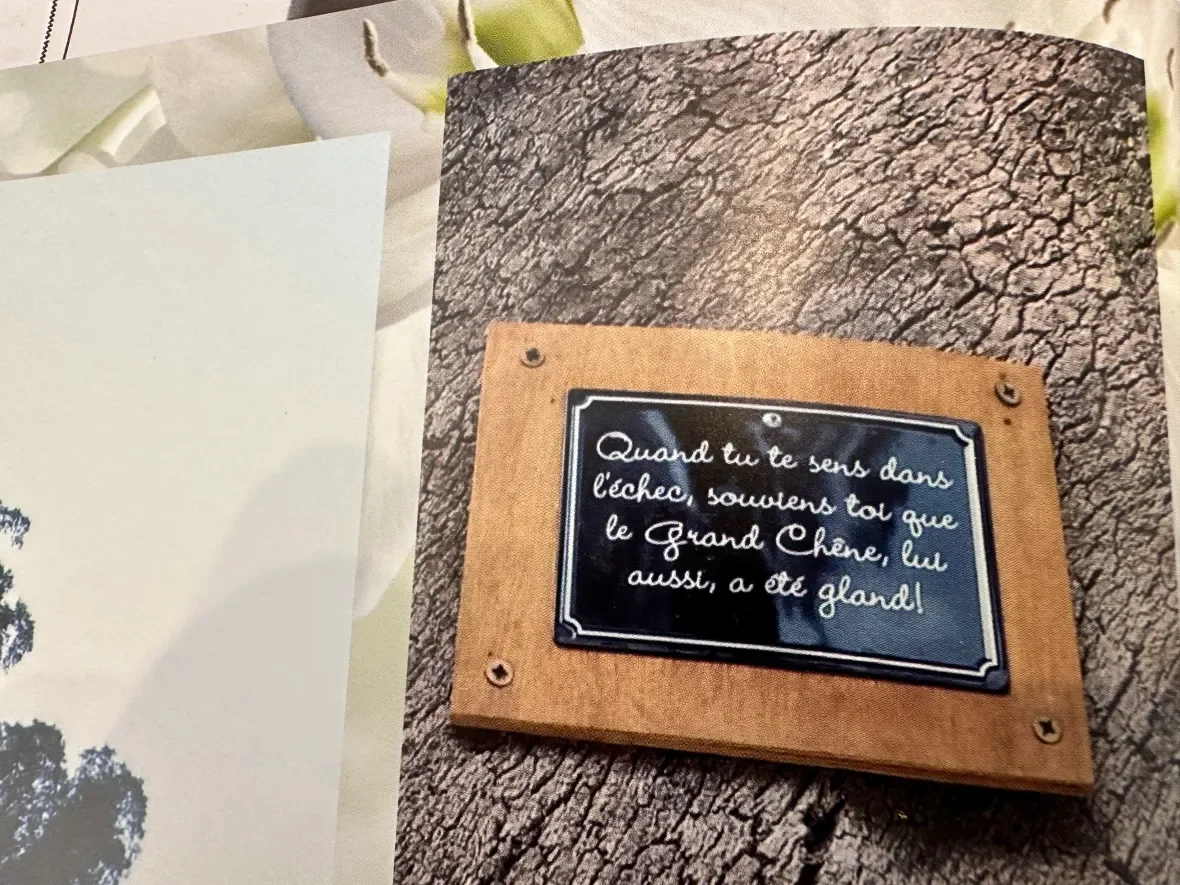 Quand tu te sens dans
l'échec, souviens toi que
le Grand Chêne, lui
aussi, a été gland!